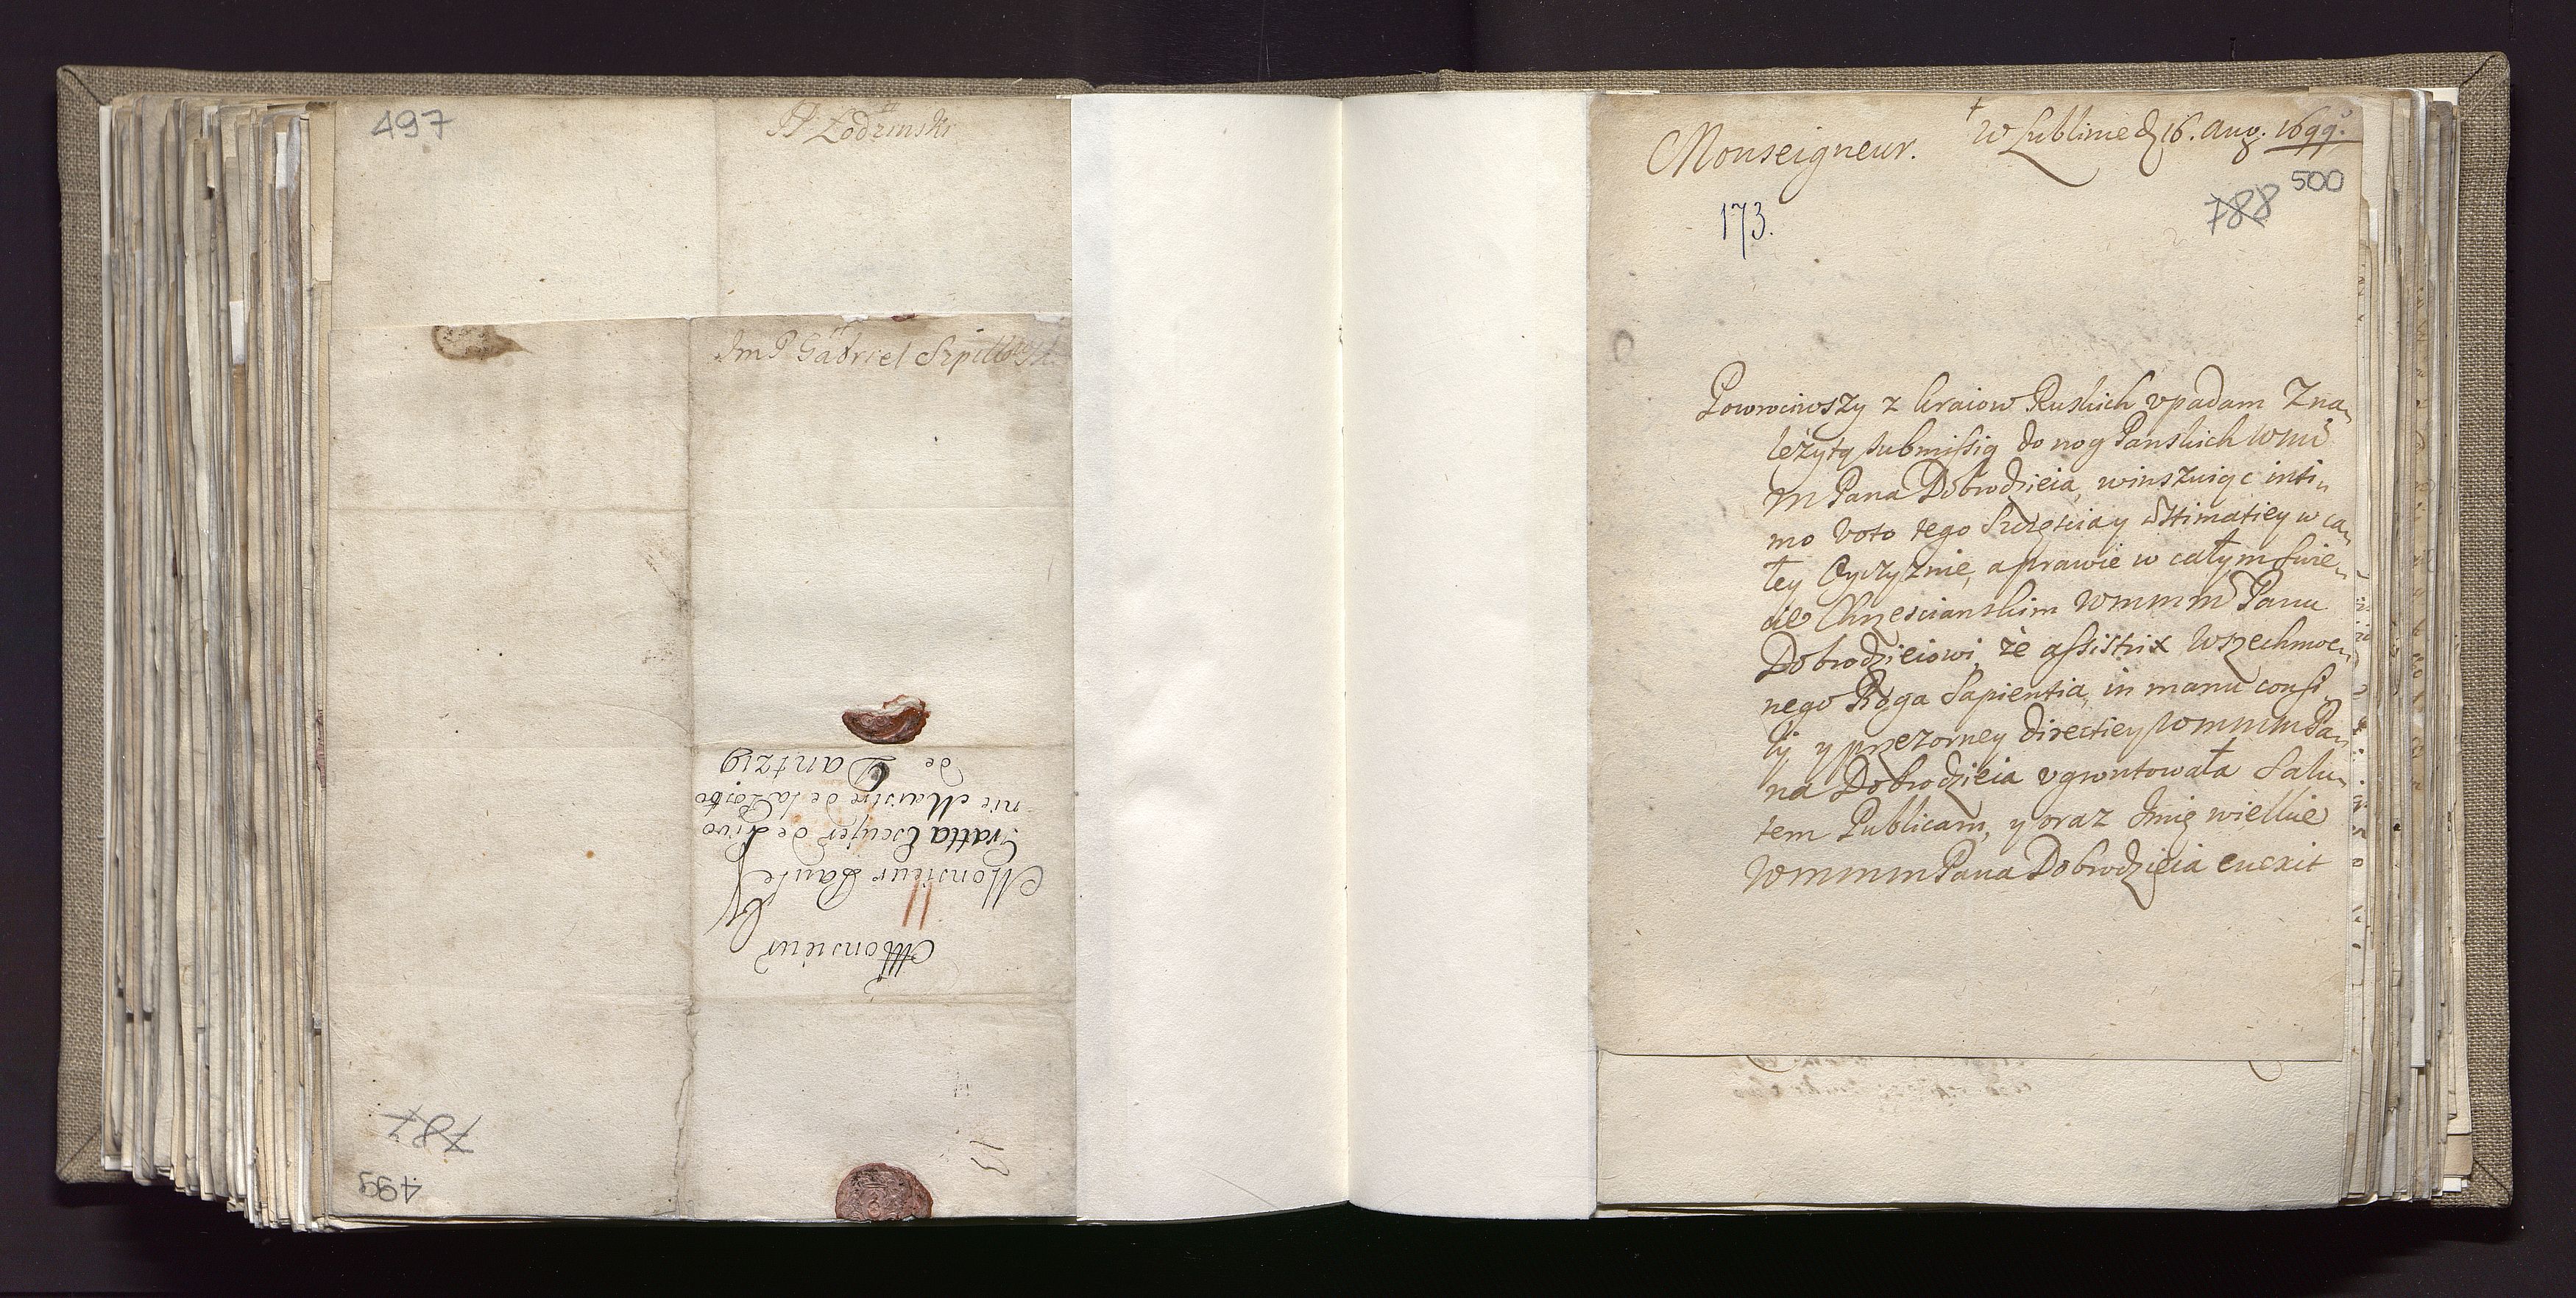 497
P Łodzinski
JmP Gabriel Szpilowski
Monsieur
Monsieur Paul
Pratta Escuyer de Livo
nie Maistre de la Poste
de Dantzig
787
499
Monseigneur.
W Lublinie d 16. Aug. 1699.
500
788
173.
Powrociwszy z kraiow Ruskich vpadam Zna„
leżytą submissią do nog Panskich WM
M Pana Dobrodzieia, winszuiąc inti„
mo voto tego Szczęścia y Estimatiey w ca„
łey Oyczyznie, a prawie w całym swie„
cie Chrzescianskim WMMM Panu
Dobrodzieiowi, że assistrix Wszechmoc„
nego Boga Sapientia, in manu consi„
lij y przezorney directiey WMMM Pa„
na Dobrodzieia vgruntowała Salu„
tem Publicam, y oraz Jmię wielkie
WMMM Pana Dobrodzieia euexit